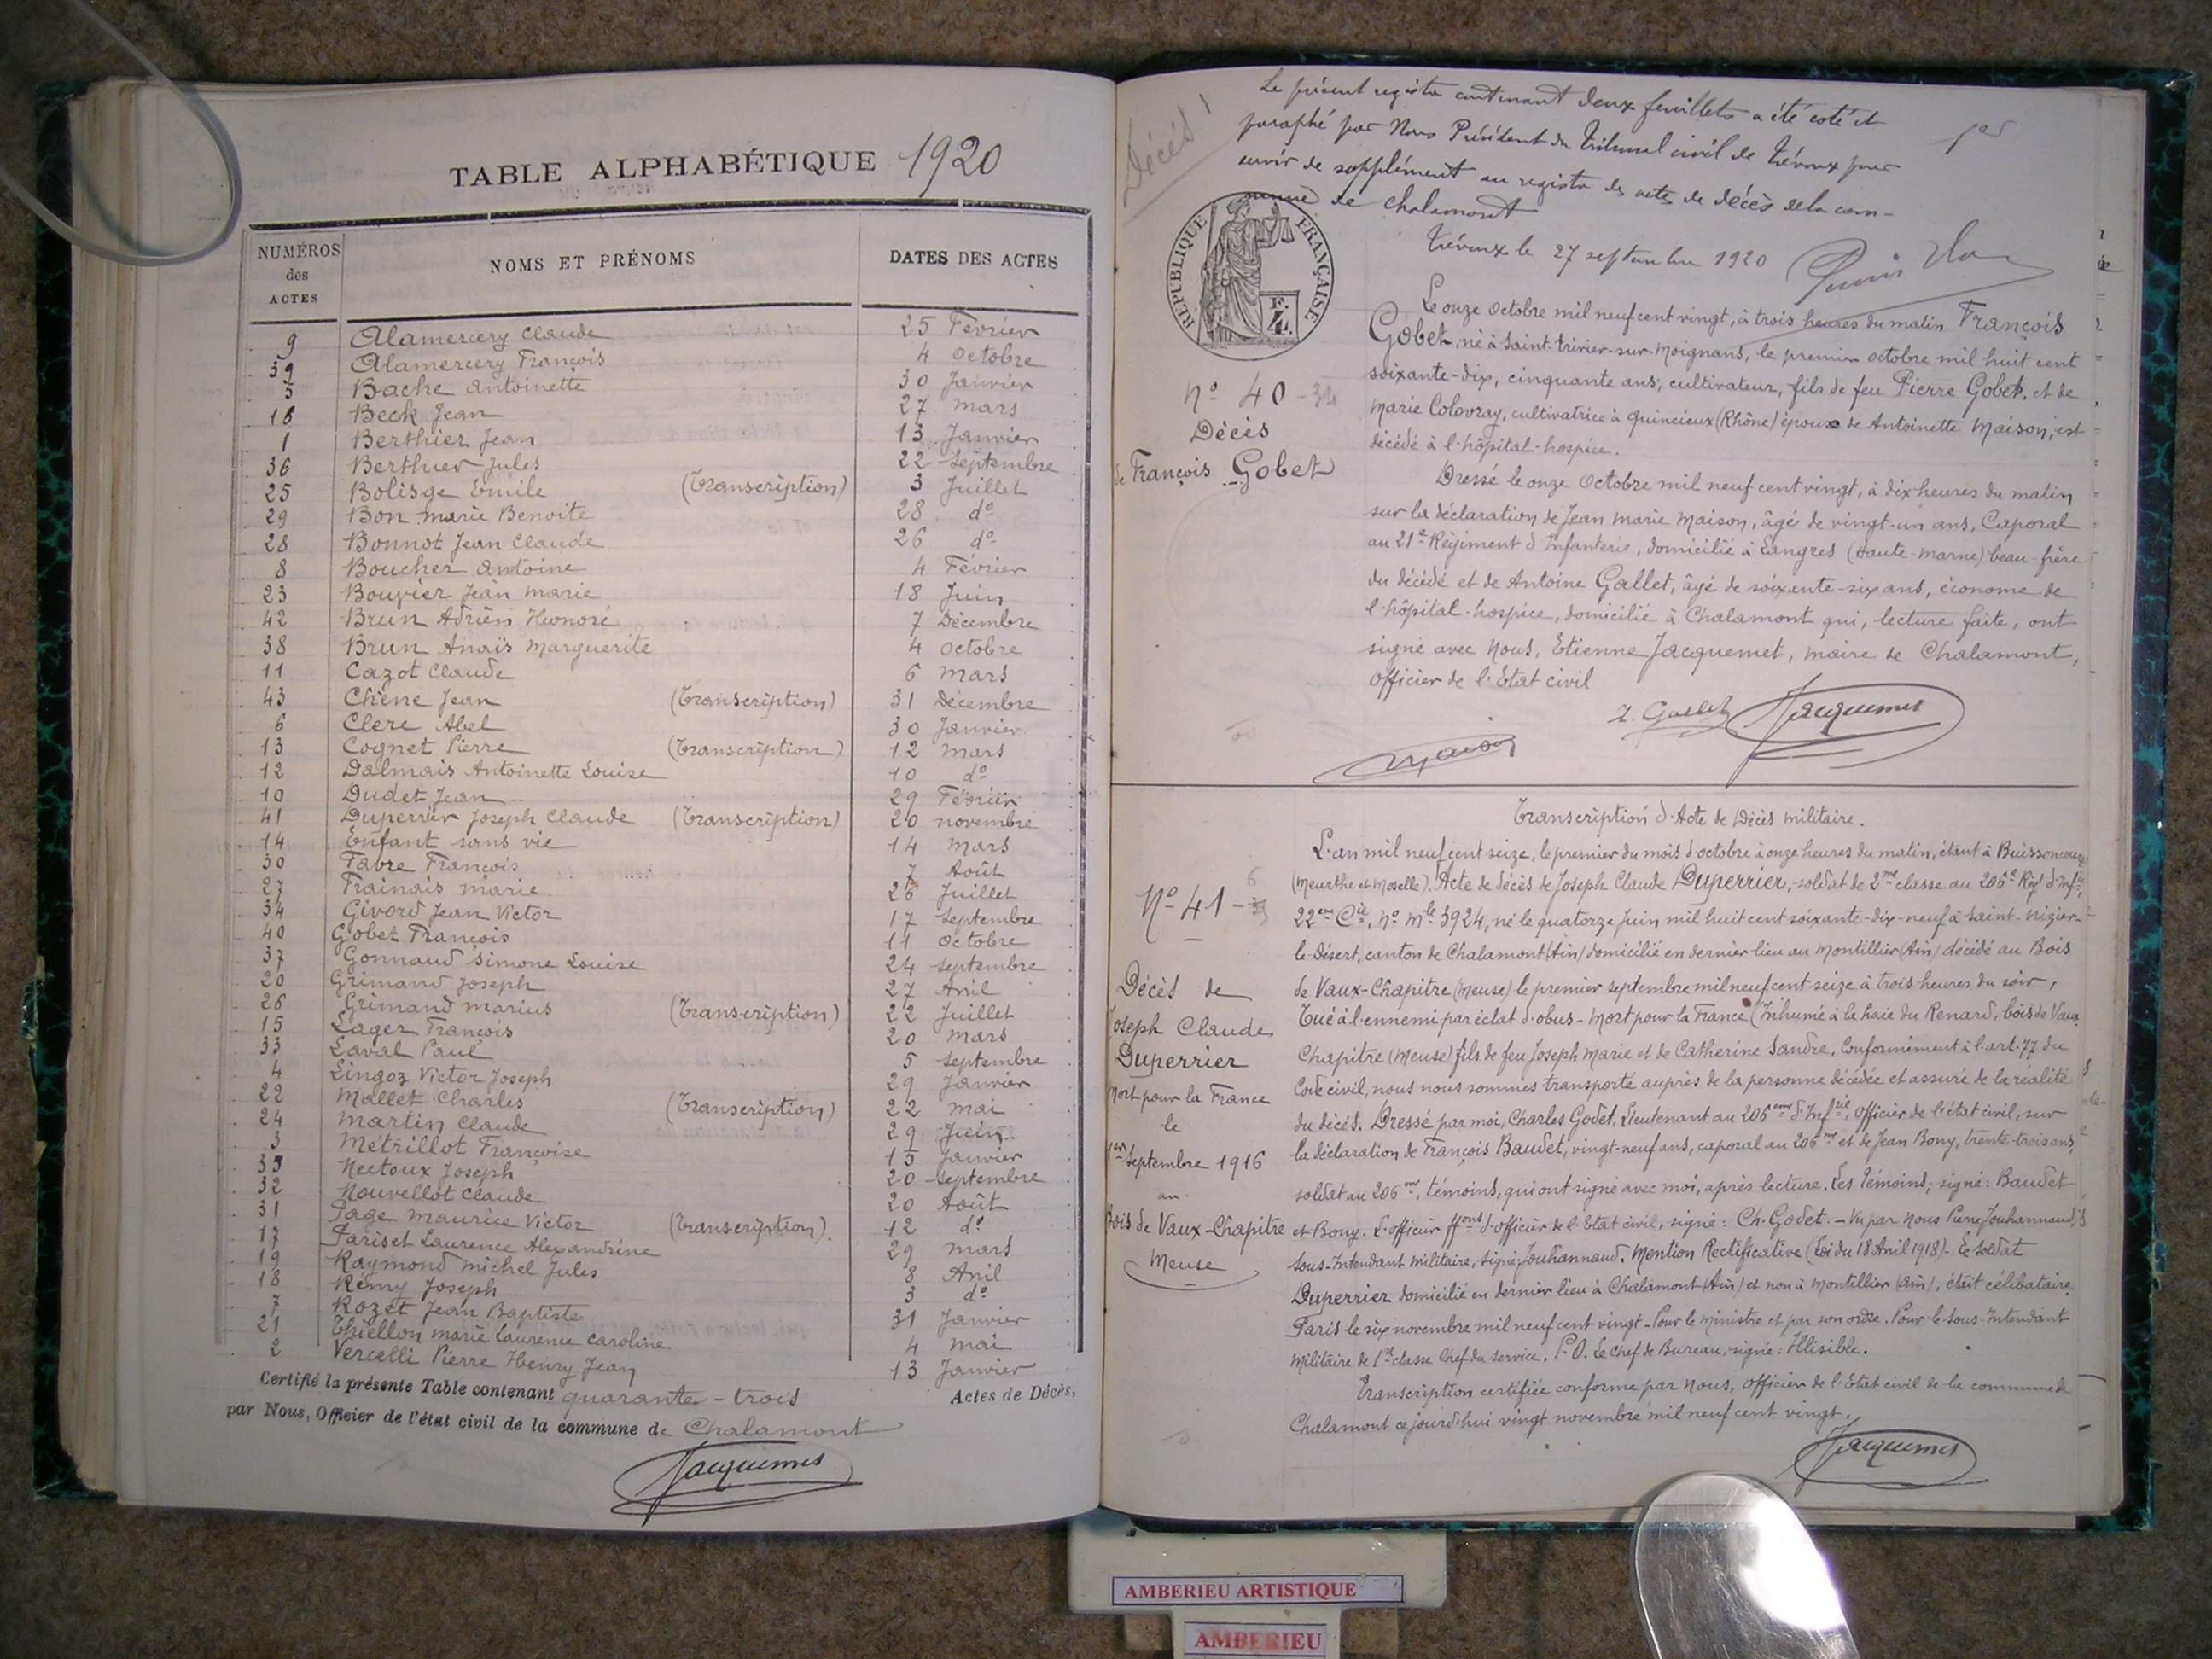 TABLE ALPHABÉTIQUE 1920
NUMÉROS des ACTES NOMS ET PRÉNOMS DATES DES ACTES
9 Alamercery Claude 25 Février
39 Alamercery François 4 Octobre
5 Bache Antoinette 30 Janvier
16 Beck Jean 27 mars
1 Berthier Jean 13 Janvier
36 Berthier Jules 22 Septembre
25 Bolisge Emile (Transcription) 3 Juillet
29 Bon marie Benoite 28 do
28 Bonnot Jean Claude 26 do
8 Boucher Antoine 4 Février
23 Bouvier Jean marie 18 Juin
42 Brun Adrien Honoré 7 Décembre
38 Brun Anaïs Marguerite 4 Octobre
11 Cazot Claude 6 mars
43 Chêne Jean (Transcription) 31 Décembre
6 Clerc Abel 30 Janvier
13 Cognet Pierre (Transcription) 12 mars
12 Dalmais Antoinette Louise 10 do
10 Dudet Jean 29 Février
41 Duperrier Joseph Claude (Transcription) 20 novembre
14 Enfant sans vie 14 mars
30 Fabre François 7 Août
27 Frainais marie 26 Juillet
34 Givord Jean Victor 17 Septembre
40 Gobet François 11 Octobre
37 Gonnaud Simone Louise 24 Septembre
20 Grimand Joseph 27 Avril
26 Grimand marius (Transcription) 22 Juillet
15 Lager François 20 mars
33 Laval Paul 5 Septembre
4 Lingoz Victor Joseph 29 Janvier
22 Mallet Charles (Transcription) 22 mai
24 Martin Claude 29 Juin
3 Métrillot Françoise 15 Janvier
35 Nectoux Joseph 20 Septembre
32 Nouvellot Claude 20 Août
31 Page Maurice Victor (Transcription) 12 do
17 Pariset Laurence Alexandrine 29 mars
19 Raymond Michel Jules 8 Avril
18 Rémy Joseph 3 do
7 Rozet Jean Baptiste 31 Janvier
21 Thiellon marie Laurence Caroline 4 mai
2 Vercelli Pierre Henry Jean 13 Janvier
Certifié la présente Table contenant quarante-trois Actes de Décès,
par Nous, Officier de l'état civil de la commune de Chalamont
Jacquemet
Décès
Le présent registre contenant deux feuillets a été coté et
paraphé par Nous Président du Tribunal civil de Trévoux pour
servir de supplément au registre des actes de décès de la com-
mune de Chalamont
1er
Trévoux le 27 septembre 1920
RÉPUBLIQUE FRANÇAISE
No 40
Décès
de François Gobet
Le onze Octobre mil neuf cent vingt, à trois heures du matin François
Gobet, né à Saint-Trivier-sur-Moignans, le premier octobre mil huit cent
soixante-dix, cinquante ans, cultivateur, fils de feu Pierre Gobet, et de
Marie Colovray, cultivatrice à Quincieux (Rhône) époux de Antoinette Maison, est
décédé à l'hôpital-hospice.
Dressé le onze Octobre mil neuf cent vingt, à dix heures du matin
sur la déclaration de Jean Marie Maison, âgé de vingt-un ans, Caporal
au 21e Régiment d'Infanterie, domicilié à Langres (Haute-Marne) beau-frère
du décédé et de Antoine Gallet, âgé de soixante-six ans, économe de
l'hôpital-hospice, domicilié à Chalamont qui, lecture faite, ont
signé avec Nous, Etienne Jacquemet, maire de Chalamont,
Officier de l'Etat civil
Maison
Gallet
Jacquemet
No 41
Décès de
Joseph Claude
Duperrier
Mort pour la France
le
1er Septembre 1916
au
Bois de Vaux-Chapitre
Meuse
Transcription d'Acte de Décès militaire.
L'an mil neuf cent seize, le premier du mois d'octobre à onze heures du matin, étant à Buissoncourt
(Meurthe et Moselle). Acte de décès de Joseph Claude Duperrier, soldat de 2me classe au 206e Régt d'Infie,
22eme Cie, No Mle 3924, né le quatorze Juin mil huit cent soixante-dix-neuf à Saint-Nizier-
le-Désert, canton de Chalamont (Ain) domicilié en dernier lieu au Montillier (Ain) décédé au Bois
de Vaux-Chapitre (Meuse) le premier septembre mil neuf cent seize à trois heures du soir,
Tué à l'ennemi par éclat d'obus - Mort pour la France (Inhumé à la haie du Renard, bois de Vaux
Chapitre (Meuse) fils de feu Joseph Marie et de Catherine Sandre. Conformément à l'art. 77 du
Code civil, nous nous sommes transporté auprès de la personne décédée et assuré de la réalité
du décès. Dressé par moi, Charles Godet, Lieutenant au 206eme d'Infrie, Officier de l'état civil, sur
la déclaration de François Baudet, vingt-neuf ans, caporal au 206me et de Jean Bony, trente-trois ans,
soldat au 206me, témoins, qui ont signé avec moi, après lecture. Les Témoins, signé: Baudet
et Bony. L'officier ffons d'officier de l'Etat civil, signé: Ch. Godet. - Vu par Nous Pierre Jouhannaud,
Sous-Intendant militaire, signé Jouhannaud. Mention Rectificative (Loi du 18 Avril 1918) - Le soldat
Duperrier domicilié en dernier lieu à Chalamont (Ain) et non à Montillier (Ain), était célibataire.
Paris le six novembre mil neuf cent vingt - Pour le Ministre et par son ordre. Pour le Sous-Intendant
Militaire de 1re classe Chef du Service. P.O. Le Chef de Bureau, signé: Illisible.
Transcription certifiée conforme par Nous, Officier de l'Etat civil de la commune de
Chalamont ce jourd'hui vingt novembre mil neuf cent vingt.
Jacquemet
AMBERIEU ARTISTIQUE
AMBERIEU